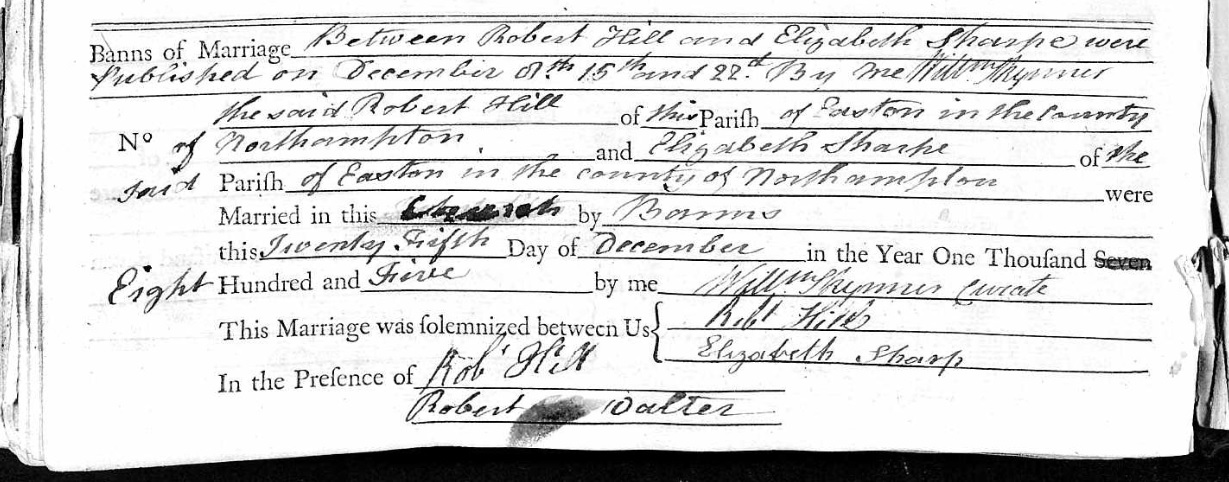 Banns of Marriage Between Robert Hill and Elizabeth Sharpe were
Published on December 8th 15th and 22d By me Willm Skynner
the said Robert Hill of this Pariſh of Easton in the County
No of Northampton and Elizabeth Sharpe of the
said Pariſh of Easton in the county of Northampton were
Married in this Church by Banns
this Twenty Fifth Day of December in the Year One Thouſand Seven
Eight Hundred and Five by me Willm Skynner Curate
This Marriage was ſolemnized between Us Robt Hill
Elizabeth Sharp
In the Preſence of Robt Hill
Robert Dalter